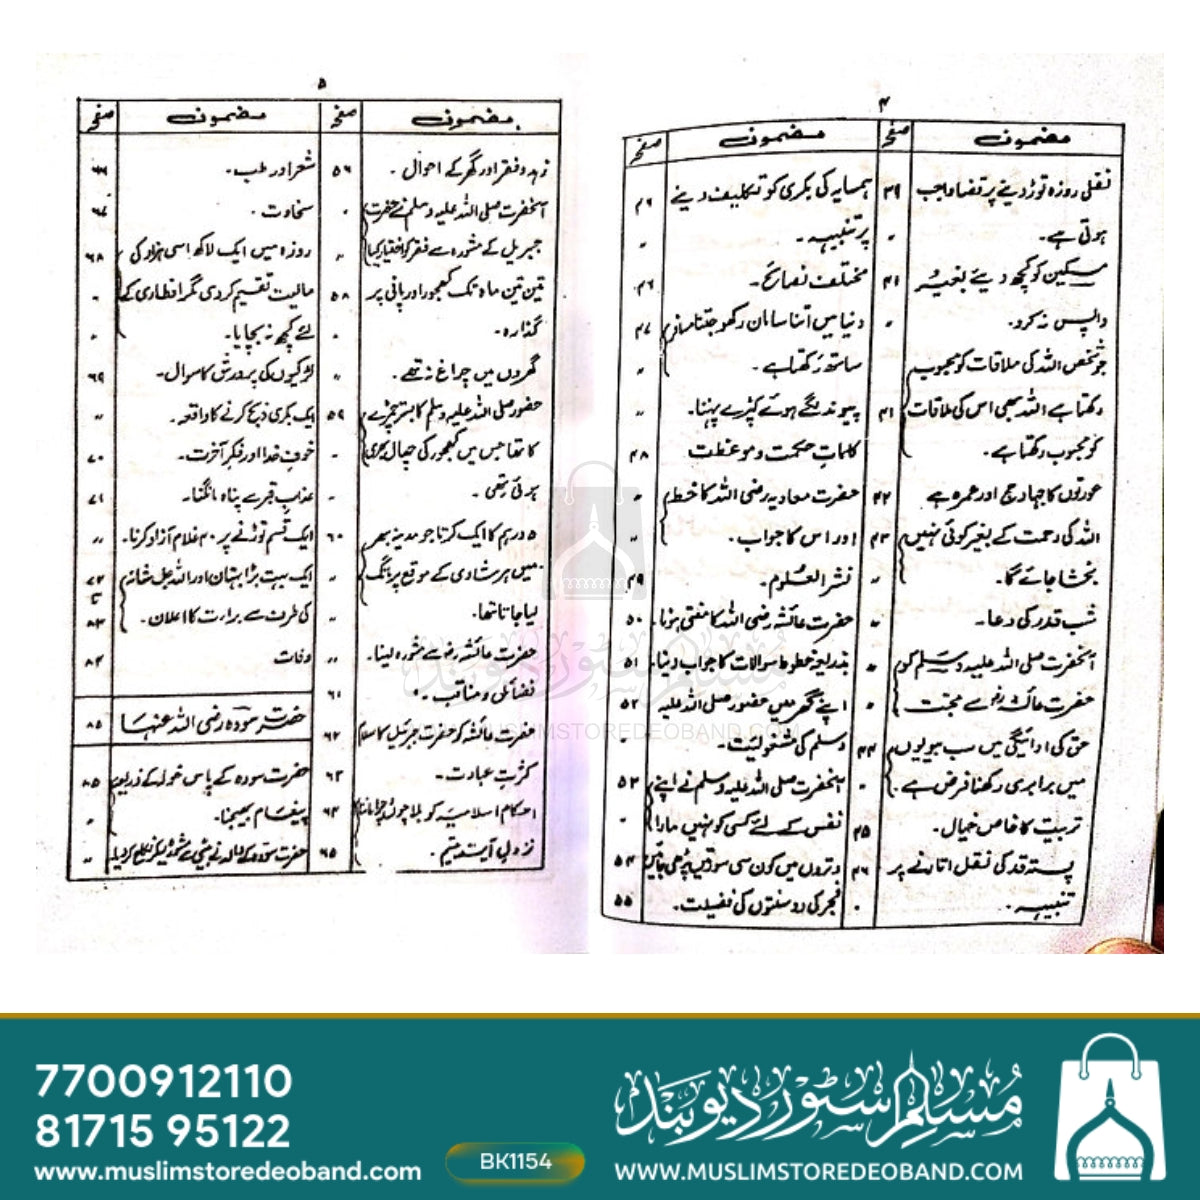 ۴
مضمون صفحہ مضمون صفحہ
نفلی روزہ توڑ دینے پر قضا واجب ۳۹
ہوتی ہے۔ "
مسکین کو کچھ دیئے بغیر ۴۱
واپس نہ کرو۔ "
جو شخص اللہ کی ملاقات کو محبوب
رکھتا ہے اللہ بھی اس کی ملاقات ۴۱
کو محبوب رکھتا ہے۔
عورتوں کا جہاد حج اور عمرہ ہے ۴۲
اللہ کی رحمت کے بغیر کوئی نہیں ۴۳
بخشا جائے گا۔ "
شب قدر کی دعا۔ "
آنحضرت صلی اللہ علیہ وسلم کو "
حضرت عائشہ رضہ سے محبت "
حق کی ادائیگی میں سب بیویوں ۴۴
میں برابری رکھنا فرض ہے۔ "
تربیت کا خاص خیال۔ ۴۵
پستہ قد کی نقل اتارنے پر ۴۶
تنبیہہ۔ "
ہمسایہ کی بکری کو تکلیف دینے ۴۶
پر تنبیہہ۔ "
مختلف نصائح۔ ۴۶
دنیا میں اتنا سامان رکھو جتنا مسافر ۴۷
ساتھ رکھتا ہے۔ "
پیوند لگے ہوئے کپڑے پہننا۔ "
کلماتِ حکمت و موعظت ۴۸
حضرت معاویہ رضی اللہ کا خط "
اور اس کا جواب۔ "
نشر العلوم۔ ۴۹
حضرت عائشہ رضی اللہ کا مفتی ہونا۔ ۵۰
بذریعہ خطوط سوالات کا جواب دینا۔ ۵۱
اپنے گھر میں حضور صلی اللہ علیہ ۵۲
وسلم کی مشغولیت۔ "
آنحضرت صلی اللہ علیہ وسلم نے اپنے ۵۳
نفس کے لئے کسی کو نہیں مارا "
وتروں میں کون سی سورتیں پڑھی جائیں ۵۴
فجر کی دو سنتوں کی فضیلت۔ ۵۵
۵
مضمون صفحہ مضمون صفحہ
زہد و فقر اور گھر کے احوال۔ ۵۶
آنحضرت صلی اللہ علیہ وسلم نے حضرت "
جبریل کے مشورہ سے فقر کو اختیار کیا "
تین تین ماہ تک کھجور اور پانی پر ۵۸
گذارہ۔ "
گھروں میں چراغ نہ تھے۔ "
حضور صلی اللہ علیہ وسلم کا بستر چمڑے ۵۹
کا تھا جس میں کھجور کی چھال بھری "
ہوئی تھی۔ "
۵ درہم کا ایک کرتا جو مدینہ بھر ۶۰
میں ہر شادی کے موقع پر مانگ "
لیا جاتا تھا۔ "
حضرت عائشہ رضہ سے مشورہ لینا۔ "
فضائل و مناقب۔ ۶۱
حضرت عائشہ کو حضرت جبرئیل کا سلام ۶۲
کثرتِ عبادت۔ ۶۳
احکام اسلامیہ کو بلا چون و چرا ماننا ۶۴
نزولِ آیت تیمم۔ ۶۵
شعر اور طب۔ ۶۶
سخاوت۔ ۶۷
روزہ میں ایک لاکھ اسی ہزار کی ۶۸
مالیت تقسیم کر دی مگر افطاری کے "
لئے کچھ نہ بچایا۔ "
لڑکیوں کی پرورش کا سوال۔ ۶۹
ایک بکری ذبح کرنے کا واقعہ۔ "
خوفِ خدا اور فکرِ آخرت۔ ۷۰
عذابِ قبر سے پناہ مانگنا۔ ۷۱
ایک قسم توڑنے پر ۴۰ غلام آزاد کرنا۔ "
ایک بہت بڑا بہتان اور اللہ جل شانہ ۷۲ تا
کی طرف سے براءت کا اعلان۔ ۸۳
وفات ۸۴
حضرت سودہ رضی اللہ عنہا ۸۵
حضرت سودہ کے پاس خولہ کے ذریعہ ۸۵
پیغام بھیجنا۔ "
مسلم سٹور دیوبند
WWW.MUSLIMSTOREDEOBAND.COM
7700912110
81715 95122
www.muslimstoredeoband.com
BK1154
مسلم سٹور دیوبند
WWW.MUSLIMSTOREDEOBAND.COM